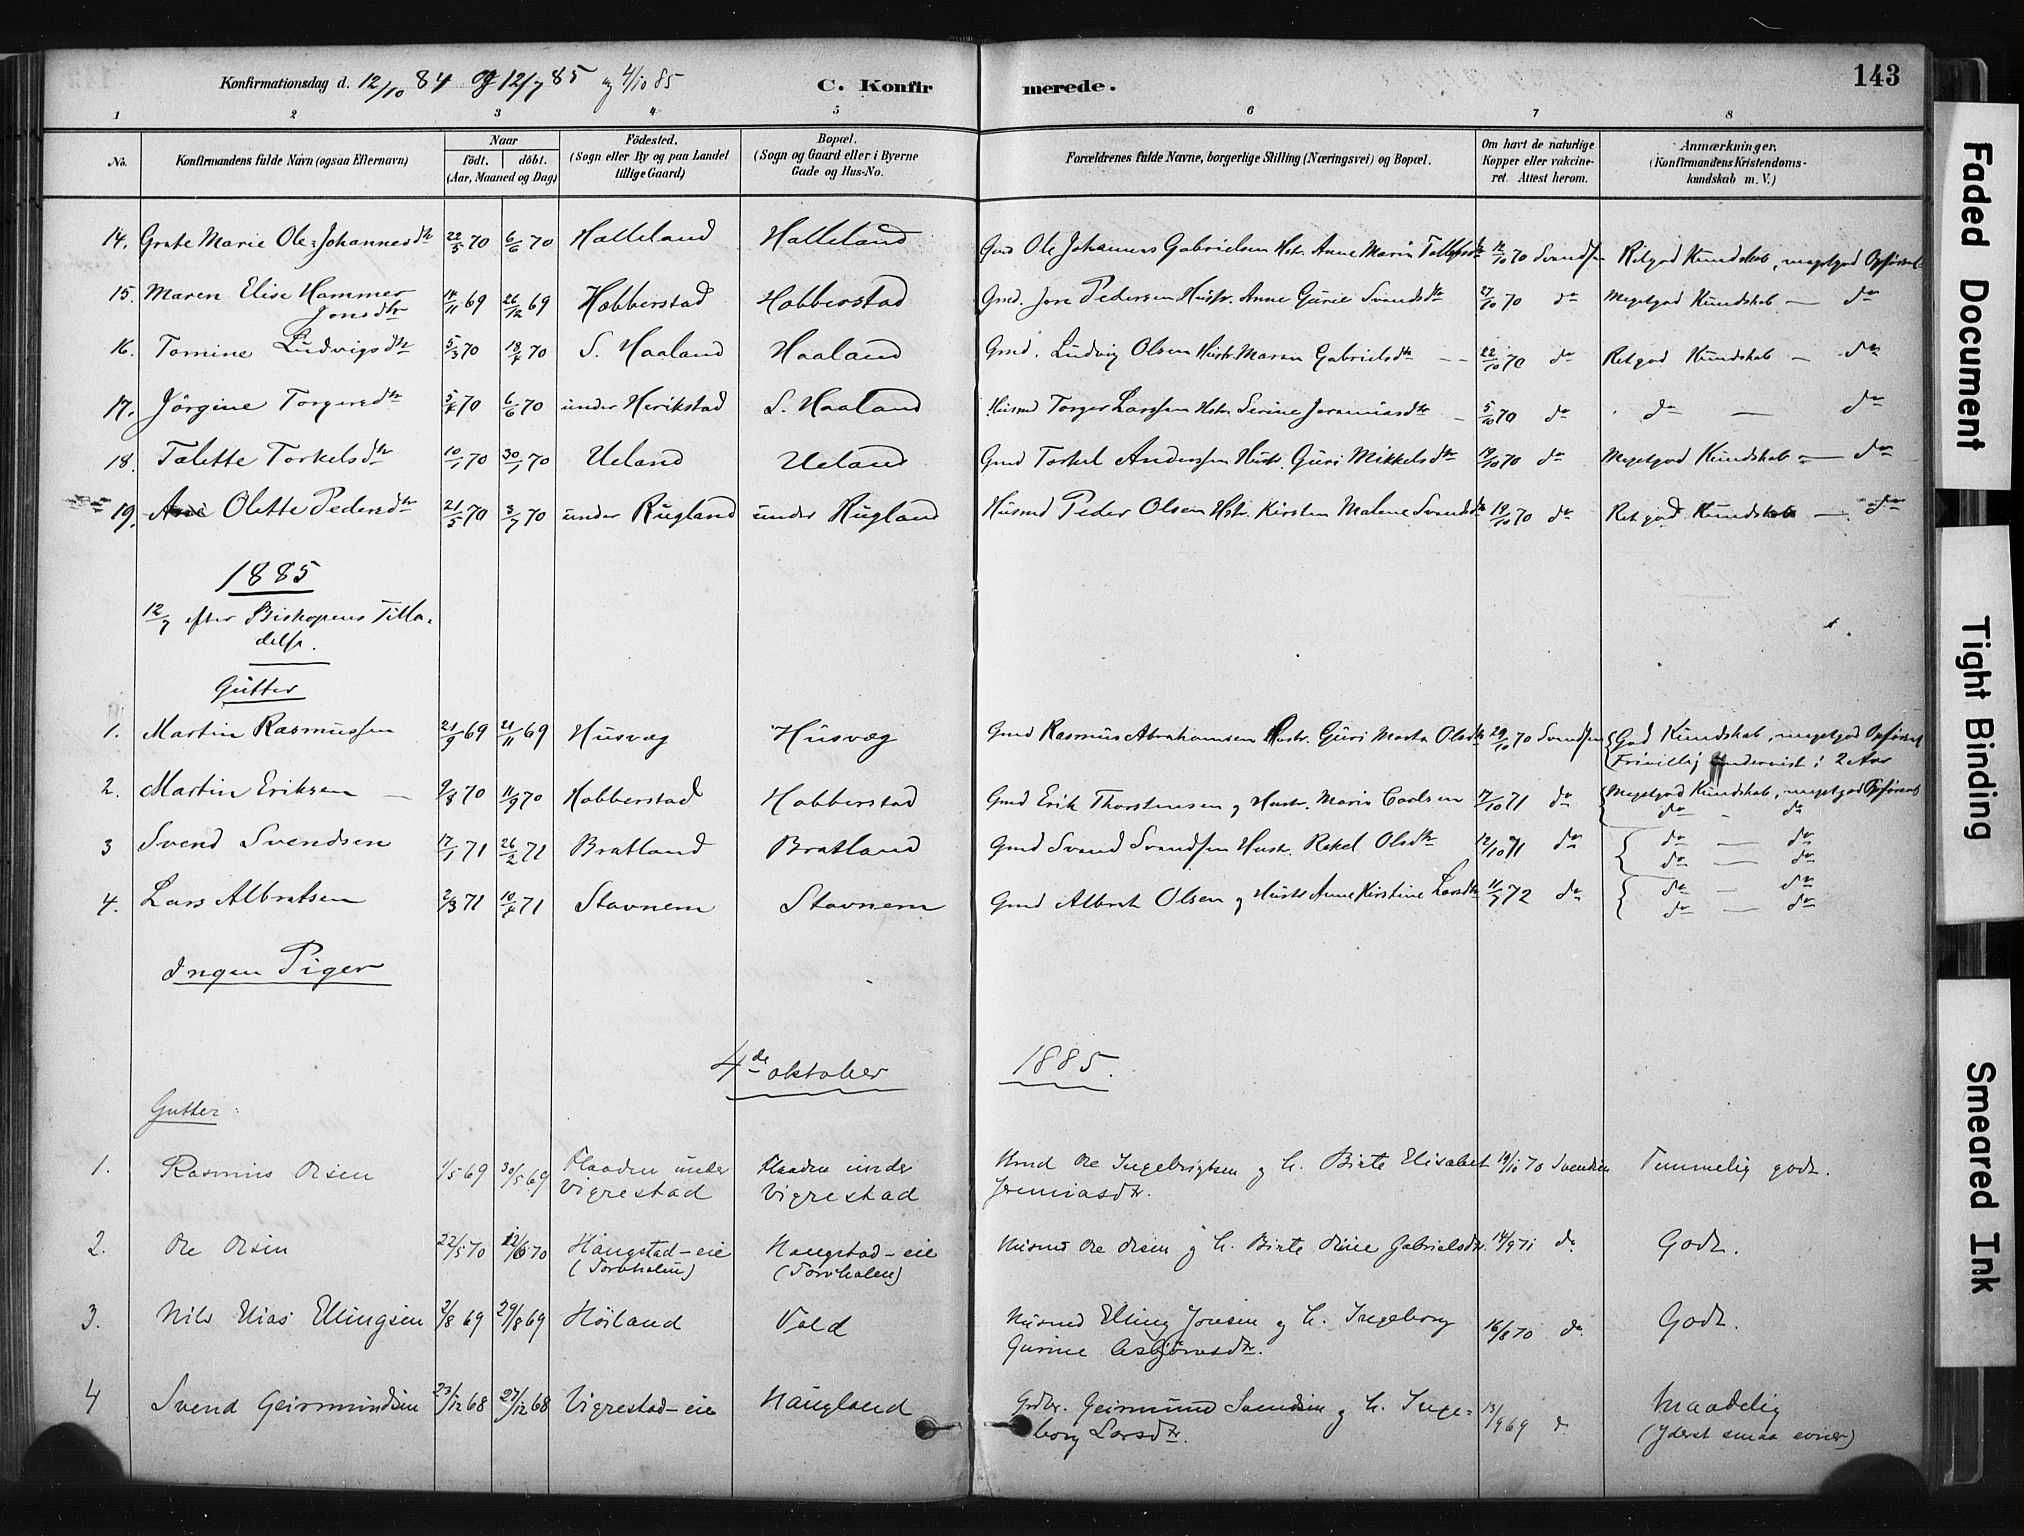 Konfirmationsdag d. 12/10 84 og 12/7 85 og 4/10 85
C. Konfirmerede.
143
1 2 3 4 5 6 7 8
No. Konfirmandens fulde Navn (ogsaa Efternavn) Naar født. døbt. (Aar, Maaned og Dag) Fødested. (Sogn eller By og paa Landet tillige Gaard) Bopæl. (Sogn og Gaard eller i Byerne Gade og Hus-No. Forældrenes fulde Navne, borgerlige Stilling (Næringsvei) og Bopæl. Om havt de naturlige Kopper eller vakcineret. Attest herom. Anmærkninger. (Konfirmandens Kristendomskundskab m. V.)
14. Grete Marie Ole-Johannesdtr 22/5 70 6/6 70 Halleland Halleland Gmd Ole Johannes Gabrielsen Hstr. Anne Marie 12/10 70 Svendsen Retgod Kundskab, megetgod Opførsel
15. Maren Elise Hammer Jonsdtr 14/11 69 26/12 69 Hobberstad Hobberstad Gmd. Jon Pedersen Hustr. Anne Gurie Svendsdtr 27/10 70 do Megetgod Kundskab — do
16. Tomine Ludvigsdtr 5/3 70 18/4 70 S. Haaland Haaland Gmd. Ludvig Olsen Hustr. Maren Gabrielsdtr — 22/10 70 do Retgod Kundskab — do
17. Jörgine Torgersdtr 5/4 70 6/6 70 under Herikstad S. Haaland Husmd Torger Larssen Hstr. Serine Jeremiasdtr — 5/10 70 do do — do
18. Talette Torkelsdtr 10/1 70 30/1 70 Ueland Ueland Gmd Torkel Anderssen Hustr. Guri Mikkelsdtr 19/10 70 do Megetgod Kundskab — do
19. Olette Pedersdtr 21/5 70 3/7 70 under Rugland under Rugland Husmd Peder Olsen Hstr. Kirsten Malene Svendsdtr 19/10 70 do Retgod Kundskab — do
1885
12/7 efter Biskopens Tilladelse.
Gutter
1. Martin Rasmussen 21/9 69 21/11 69 Husvæg Husvæg Gmd Rasmus Abrahamsen Hustr. Guri Marta Olsdtr 29/10 70 Svendsen God Kundskab, megetgod Opførsel
Frivillig undervist i 2 Aar
2. Martin Eriksen — 9/8 70 11/9 70 Hobberstad Hobberstad Gmd Erik Thorstensen og Hustr. Marie Carlsen 17/10 71 do Megetgod Kundskab, megetgod Opførsel
do — do
3 Svend Svendsen 17/1 71 26/2 71 Bratland Bratland Gmd Svend Svendsen Hustr. Rakel Olsdtr 12/10 71 do do — do
do — do
4. Lars Albretsen 2/3 71 10/4 71 Stavnem Stavnem Gmd Albret Olsen og Hustr Anne Kirstine Larsdtr 11/7 72 do do — do
do — do
Ingen Piger
4de oktober 1885.
Gutter:
1. Rasmus Olsen 1/5 69 30/5 69 Flaaden under Vigrestad Flaaden under Vigrestad Hmd Ole Ingebrigtsen og h. Birte Elisabet Jeremiasdtr. 19/10 70 Svendsen Temmelig godt.
2. Ole Olsen 22/5 70 12/6 70 Haugstad-eie (Torvhalen) Haugstad-eie (Torvhalen) Husmd Ole Olsen og h. Birte Oline Gabrielsdtr. 14/9 71 do Godt.
3. Nils Elias Ellingsen 2/8 69 29/8 69 Höiland Vold Husmd Elling Jonsen og h. Ingeborg Gurine Asbjörnsdtr. 16/8 70 do. Godt.
4 Svend Geirmundsen 23/12 68 27/12 68 Vigrestad-eie Haugland Grdbr. Geirmund Svendsen og h. Ingeborg Larsdtr. 13/9 69 do Maadelig (yderst smaa evner)
Faded Document
Tight Binding
Smeared Ink